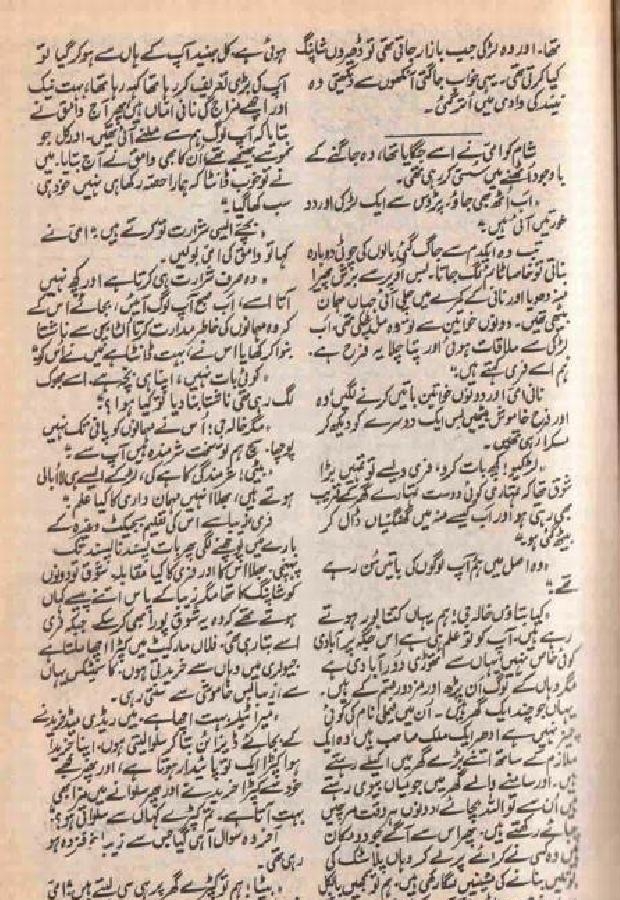 تھا۔ اور وہ لڑکی جب بازار جاتی تھی تو ڈھیروں شاپنگ
کیا کرتی تھی۔ یہی خواب جاگتی آنکھوں سے دیکھتی وہ
نیند کی وادی میں اتر گئی۔
شام کو امی نے اسے جگایا تھا، وہ جاگنے کے
باوجود اٹھنے میں سستی کر رہی تھی۔
"اب اٹھ بھی جاؤ۔ پڑوس سے ایک لڑکی اور دو
عورتیں آئی ہیں۔"
تب وہ ایکدم سے جاگ گئی بالوں کی چوٹی دوبارہ
بناتی تو خاصا ٹائم لگ جاتا۔ بس اوپر سے برش پھیرا
منہ دھویا اور نانی کے کمرے میں چلی آئی جہاں مہمان
بیٹھی تھیں۔ دونوں خواتین سے تو وہ مل چکی تھی، اب
لڑکی سے ملاقات ہوئی اور پتا چلا یہ فرح ہے۔
ہم اسے فری کہتے ہیں۔"
نانی امی اور دونوں خواتین باتیں کرنے لگیں وہ
اور فرح خاموش بیٹھیں بس ایک دوسرے کو دیکھ کر
مسکرا رہی تھیں۔
"لڑکیو! کچھ بات کرو، فری ویسے تو تمہیں بڑا
شوق تھا کہ تمہاری کوئی دوست تمہارے گھر کے قریب
بھی رہتی ہو اور اب کیسے منہ میں گھنگنیاں ڈال کر
بیٹھ گئی ہو۔"
"وہ اصل میں ہم آپ لوگوں کی باتیں سن رہے
تھے۔"
"کیا بتاؤں خالہ جی! ہم یہاں کتنا بور ہوتے
رہے ہیں۔ آپ کو تو علم ہی ہے اس جگہ پر آبادی
کوئی خاص نہیں، یہاں سے تھوڑی دور آبادی ہے
مگر وہاں کے لوگ ان پڑھ اور مزدور قسم کے ہیں۔
یہاں جو چند ایک گھر ہیں۔ ان میں فیملی نام کی کوئی
چیز نہیں ہے ادھر ایک ملک صاحب ہیں وہ ایک
ملازم کے ساتھ اتنے بڑے گھر میں اکیلے رہتے
ہیں۔ اور سامنے والے گھر میں جو میاں بیوی رہتے
ہیں ان سے تو اللہ بچائے، دونوں ہر وقت مرچیں
چبائے رکھتے ہیں۔ پھر اس سے آگے جو دو مکان
ہیں وہ کسی نے کرائے پر لے کر وہاں پلاسٹک کی
بوتلیں بنانے کی مشینیں لگا رکھی ہیں۔ ہم تو تمہیں بالکل
ہوئی ہے، کل جنید آپ کے ہاں سے ہو کر گیا تو
آپ کی بڑی تعریف کر رہا تھا کہہ رہا تھا، بہت نیک
اور اچھے مزاج کی نانی اماں ہیں پھر آج وامق نے
بتایا کہ آپ لوگ ہم سے ملنے آئی تھیں۔ اور کل جو
آپ نے بھیجے تھے، ان کا بھی وامق نے آج بتایا۔ میں
نے تو خوب ڈانٹا کہ ہمارا حصہ رکھا ہی نہیں خود ہی
سب کھا گیا۔"
"بچے ایسی شرارت تو کرتے ہیں۔" امی نے
کہا تو وامق کی امی بولیں۔
"وہ صرف شرارت ہی کرتا ہے اور کچھ نہیں
آتا اسے، اب صبح آپ لوگ آئیں، بجائے اس کے
کہ وہ مہمانوں کی خاطر مدارت کرتا الٹا بی سے ناشتا
بنوا کر کھایا اس نے، بہت ڈانٹا ہے میں نے اس کو۔"
"کوئی بات نہیں، اپنا ہی بچہ ہے۔ اسے بھوک
لگ رہی تھی ناشتا بنا دیا تو کیا ہوا؟"
"مگر خالہ جی! اس نے مہمانوں کو پانی تک نہیں
پوچھا۔ سچ ہم تو سخت شرمندہ ہیں آپ سے۔"
"بیٹی! شرمندگی کا ہے کی، لڑکے ایسے ہی لاابالی
ہوتے ہیں، بھلا انہیں مہمان داری کا کیا علم۔"
فری زیبا سے اس کی تعلیم سبجیکٹ وغیرہ کے
بارے میں پوچھنے لگی پھر بات پسند ناپسند تک
پہنچی۔ بھلا اس کا اور فری کا کیا مقابلہ۔ شوق تو دونوں
کو شاپنگ کا تھا مگر زیبا کے پاس اتنے پیسے کہاں
ہوتے تھے کہ وہ یہ شوق پورا بھی کر سکے جبکہ فری
اسے بتا رہی تھی۔ فلاں مارکیٹ میں کپڑا اچھا ملتا ہے
جیولری میں وہاں سے خریدتی ہوں، کاسمیٹکس یہاں
سے، زیبا بس خاموشی سے سنتی رہی۔
"میرا ٹیلر بہت اچھا ہے، میں ریڈی میڈ خریدنے
کے بجائے ڈیزائن بتا کر سلوا لیتی ہوں، اپنا خریدا
ہوا کپڑا ایک تو پائیدار ہوتا ہے، اور پھر مجھے
خود سے کپڑا خریدنے اور پھر سلوانے میں مزا بھی
بہت آتا ہے۔ تم کپڑے کہاں سے سلاتی ہو؟"
آخر وہ سوال آ ہی گیا جس سے زیبا خوفزدہ ہو
رہی تھی۔
"بیٹا! ہم تو کپڑے گھر پر ہی سی لیتے ہیں۔" امی